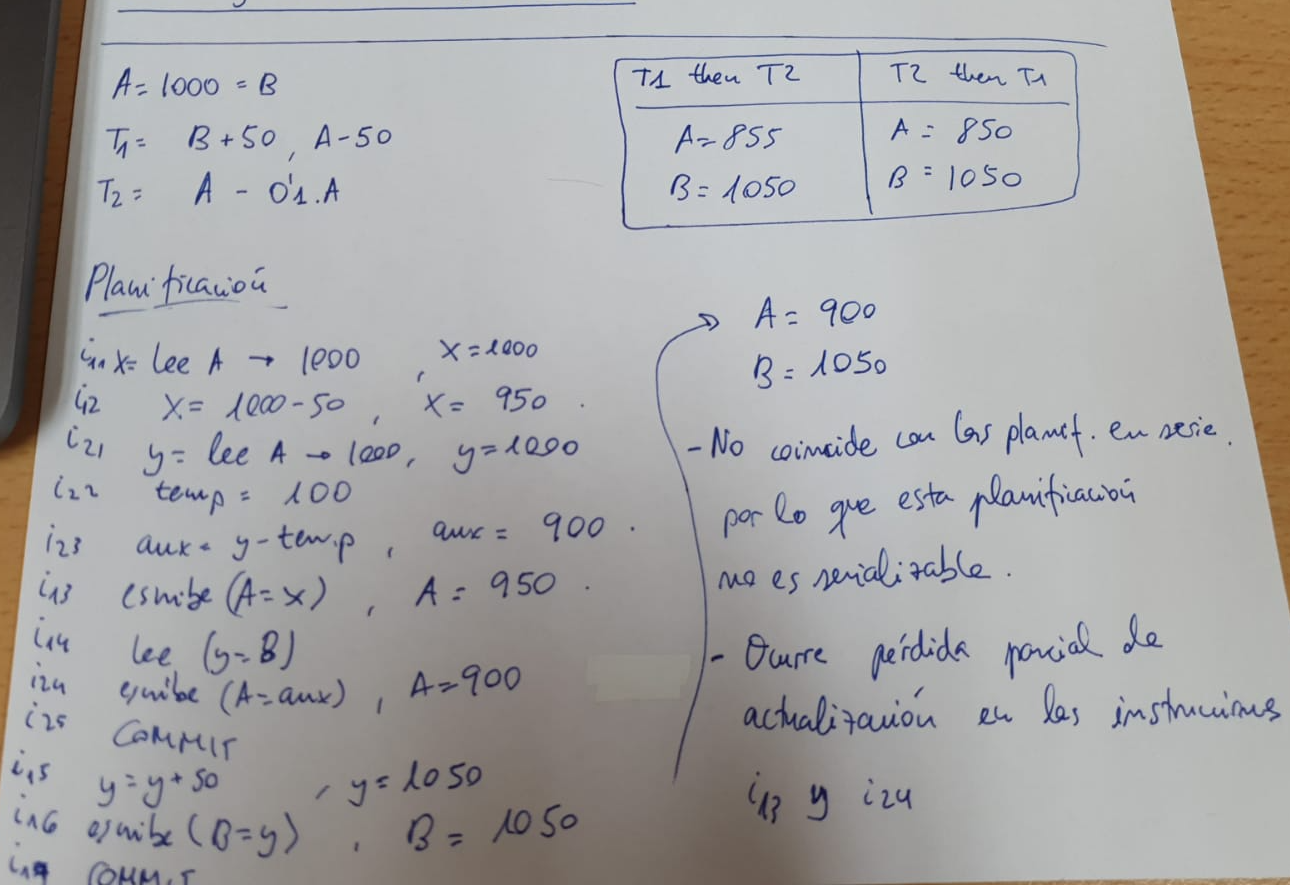 A = 1000 = B
T1 = B + 50 , A - 50
T2 = A - 0'1.A
T1 then T2 T2 then T1
A = 855 A = 850
B = 1050 B = 1050
Planificación
i11 x= lee A → 1000 , x = 1000
i12 x = 1000 - 50 , x = 950 .
i21 y = lee A → 1000, y = 1000
i22 temp = 100
i23 aux = y - temp , aux = 900 .
i13 escribe (A = x) , A = 950 .
i14 lee (y = B)
i24 escribe (A = aux) , A = 900
i25 COMMIT
i15 y = y + 50 , y = 1050
i16 escribe (B = y) , B = 1050
i17 COMMIT
A = 900
B = 1050
- No coincide con las planif. en serie.
por lo que esta planificación
no es serializable.
- Ocurre pérdida parcial de
actualización en las instrucciones
i13 y i24